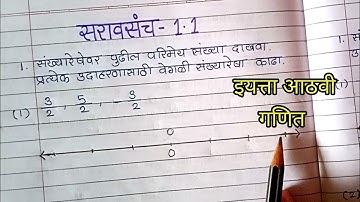 सरावसंच - 1.1
1. संख्यारेषेवर पुढील परिमेय संख्या दाखवा.
प्रत्येक उदाहरणासाठी वेगळी संख्यारेषा काढा.
(1) 3/2 , 5/2 , -3/2
इयत्ता आठवी
गणित
0
0
(2)